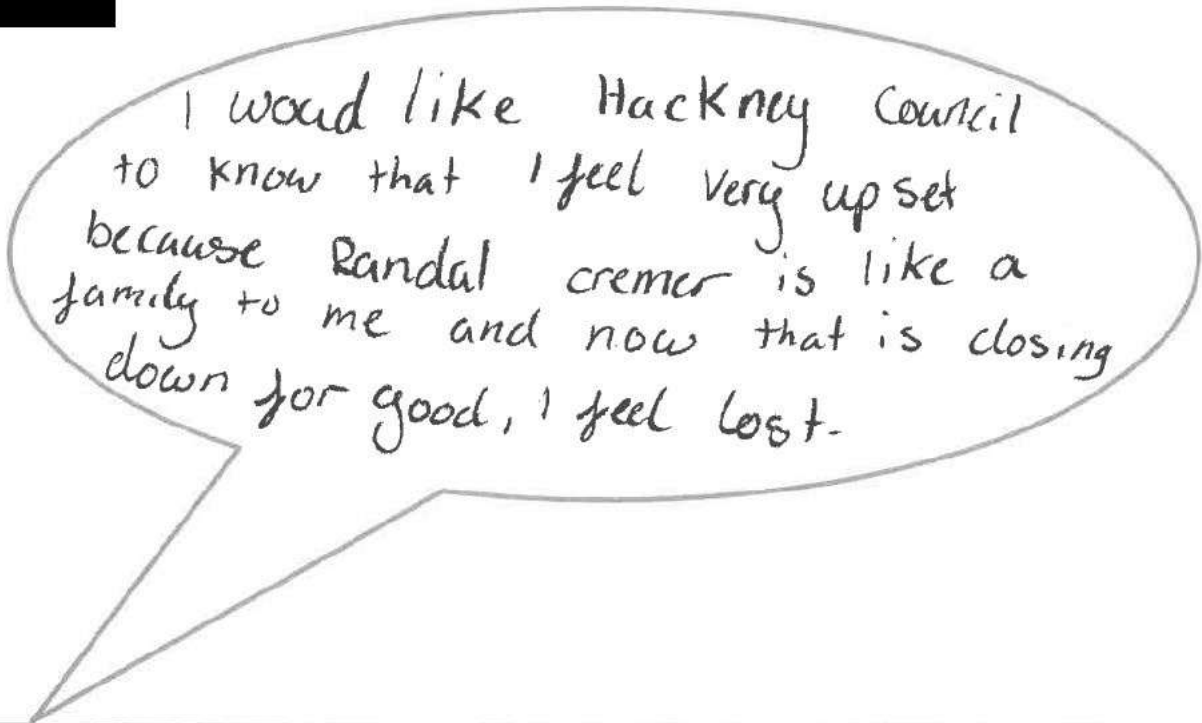 I woud like Hackney Council
to know that I feel very upset
because Randal cremer is like a
family to me and now that is closing
down for good, I feel lost.